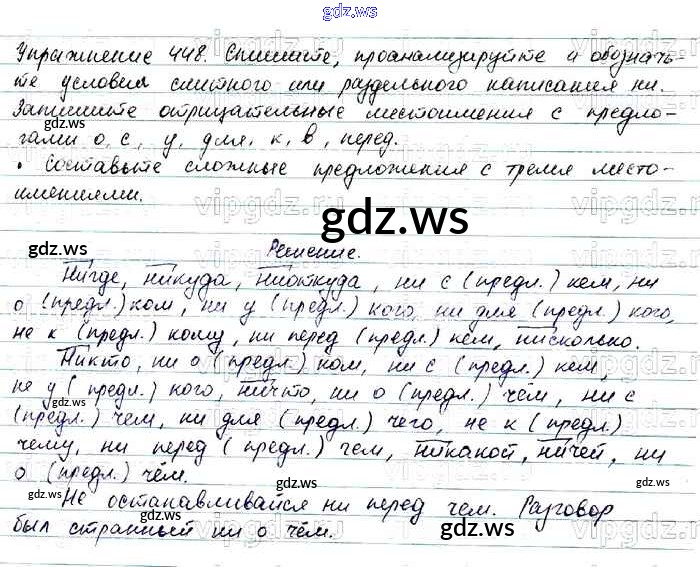 gdz.ws
Упражнение 448. Спишите, проанализируйте и обозначь-
те условия слитного или раздельного написания ни.
Запишите отрицательные местоимения с предло-
гами о, с, у, для, к, в, перед.
gdz.ws
• Составьте сложные предложения с тремя место-
имениями.
gdz.ws
Решение.
gdz.ws
Нигде, никуда, ниоткуда, ни с (предл.) кем, ни
о (предл.) ком, ни у (предл.) кого, ни для (предл.) кого,
не к (предл.) кому, ни перед (предл.) кем, нисколько.
Никто, ни о (предл.) ком, ни с (предл.) кем,
не у (предл.) кого, ничто, ни о (предл.) чём, ни с
(предл.) чем, ни для (предл.) чего, не к (предл.)
чему, ни перед (предл.) чем, никакой, ничей, ни
о (предл.) чём.
gdz.ws
Не останавливайся ни перед чем. Разговор
был странный ни о чём.
gdz.ws